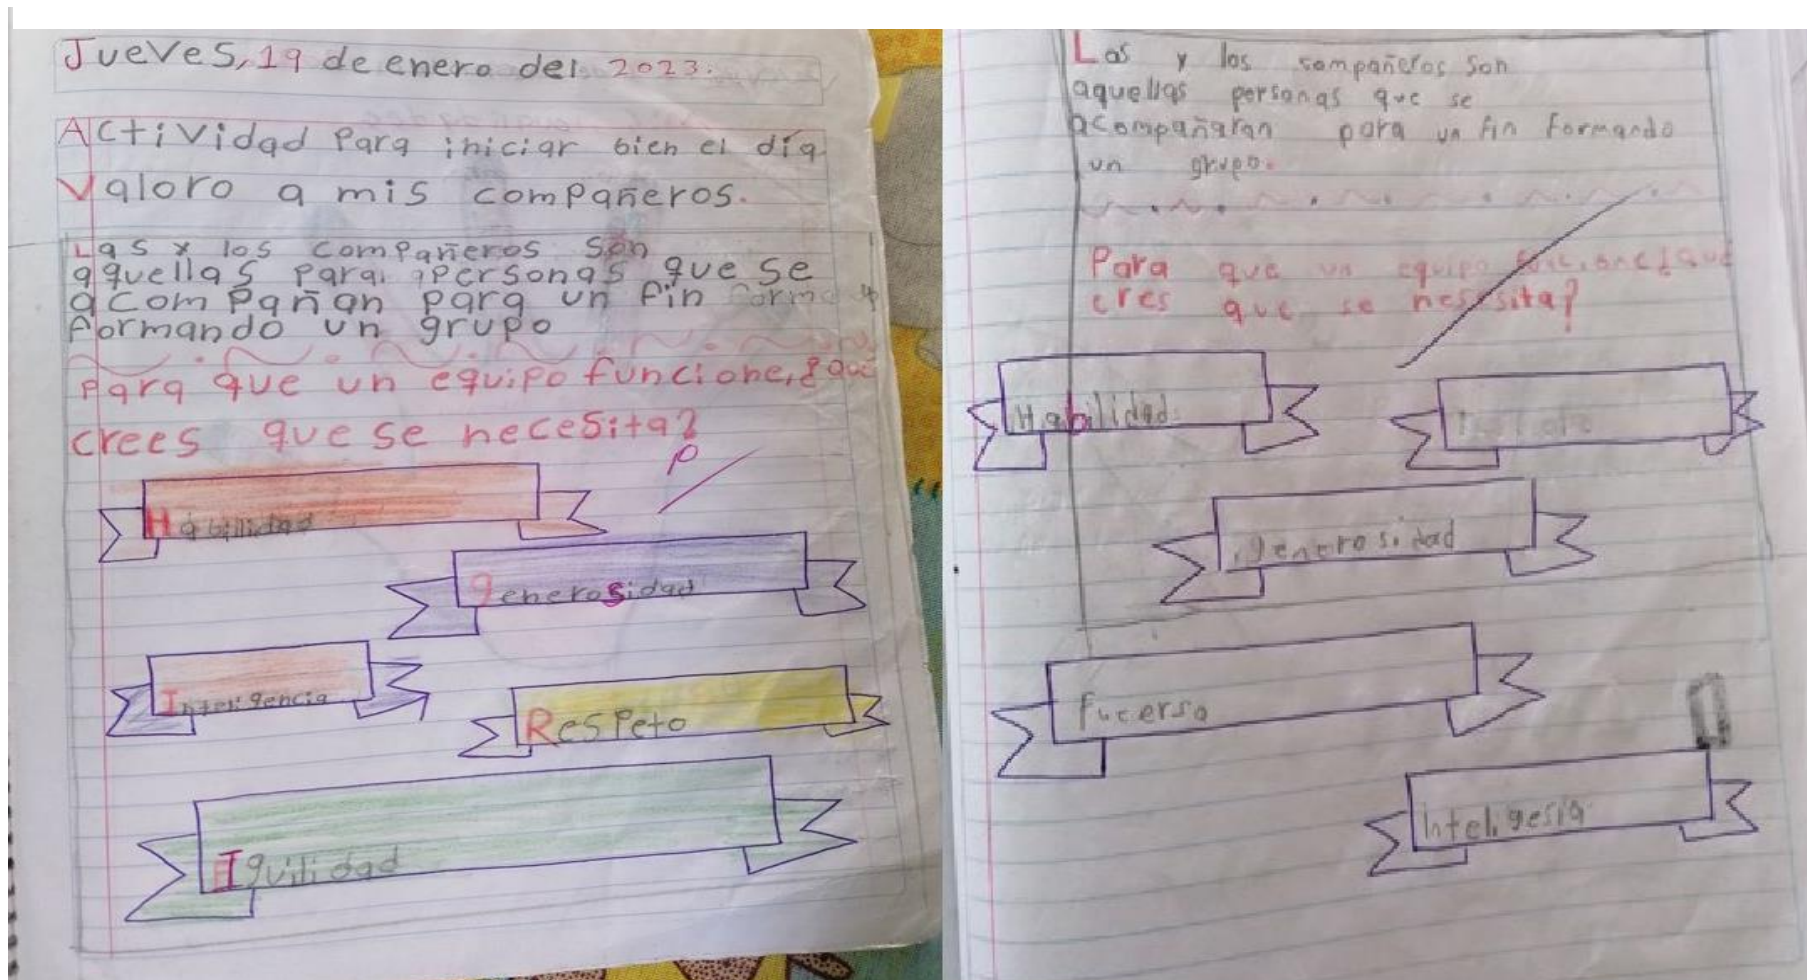 Jueves, 19 de enero del 2023.
Actividad Para iniciar bien el día
Valoro a mis compañeros.
Las y los compañeros son
aquellas para personas que se
acompañan para un fin
formando un grupo
Para que un equipo funcione, ¿que
crees que se necesita?
Habilidad
generosidad
Inteligencia
Respeto
Iguilidad
Las y los compañeros son
aquellas personas que se
acompañaran para un fin formando
un grupo.
Para que un equipo funcione ¿que
cres que se nesesita?
Habilidad
generosidad
fucersa
Inteligesia